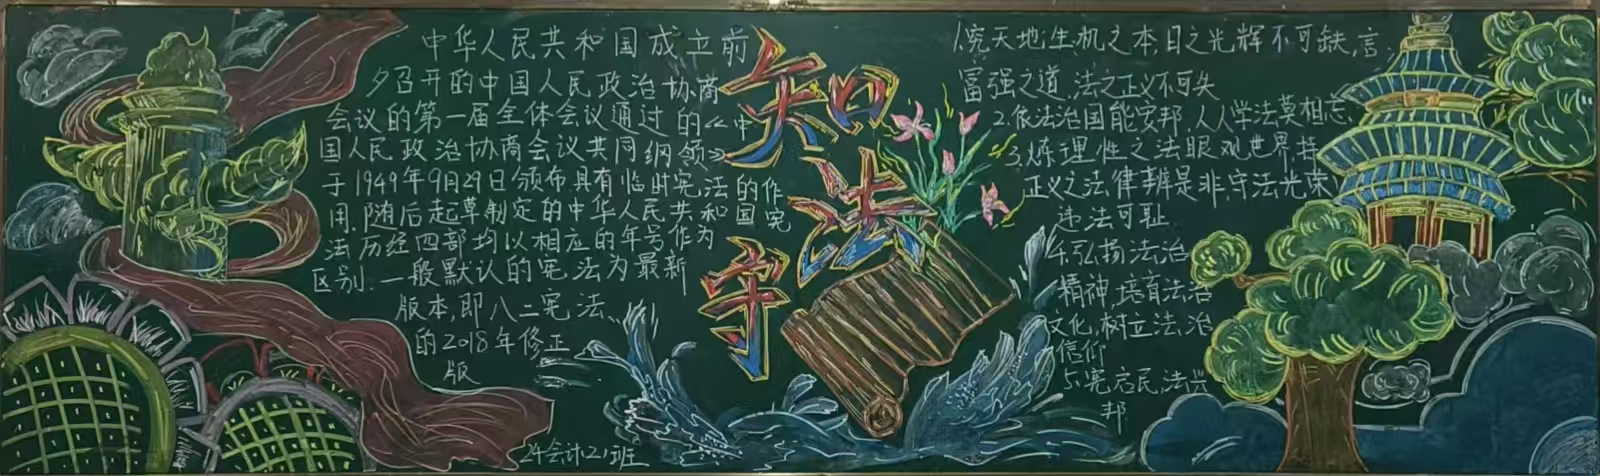 中华人民共和国成立前
夕召开的中国人民政治协商
会议的第一届全体会议通过的《中
国人民政治协商会议共同纲领》
于1949年9月29日颁布具有临时宪法的作
用.随后起草制定的中华人民共和国宪
法历经四部均以相应的年号作为
区别.一般默认的宪法为最新
版本,即八二宪法、
的2018年修正
版
24会计21班
知
法
守
1.究天地生机之本,日之光辉不可缺,言
富强之道,法之正义不可失
2.依法治国能安邦,人人学法莫相忘
3.炼理性之法眼观世界,持
正义之法律辨是非,守法光荣
违法可耻
4.弘扬法治
精神,培育法治
文化,树立法治
信仰
5.宪启民法兴
邦